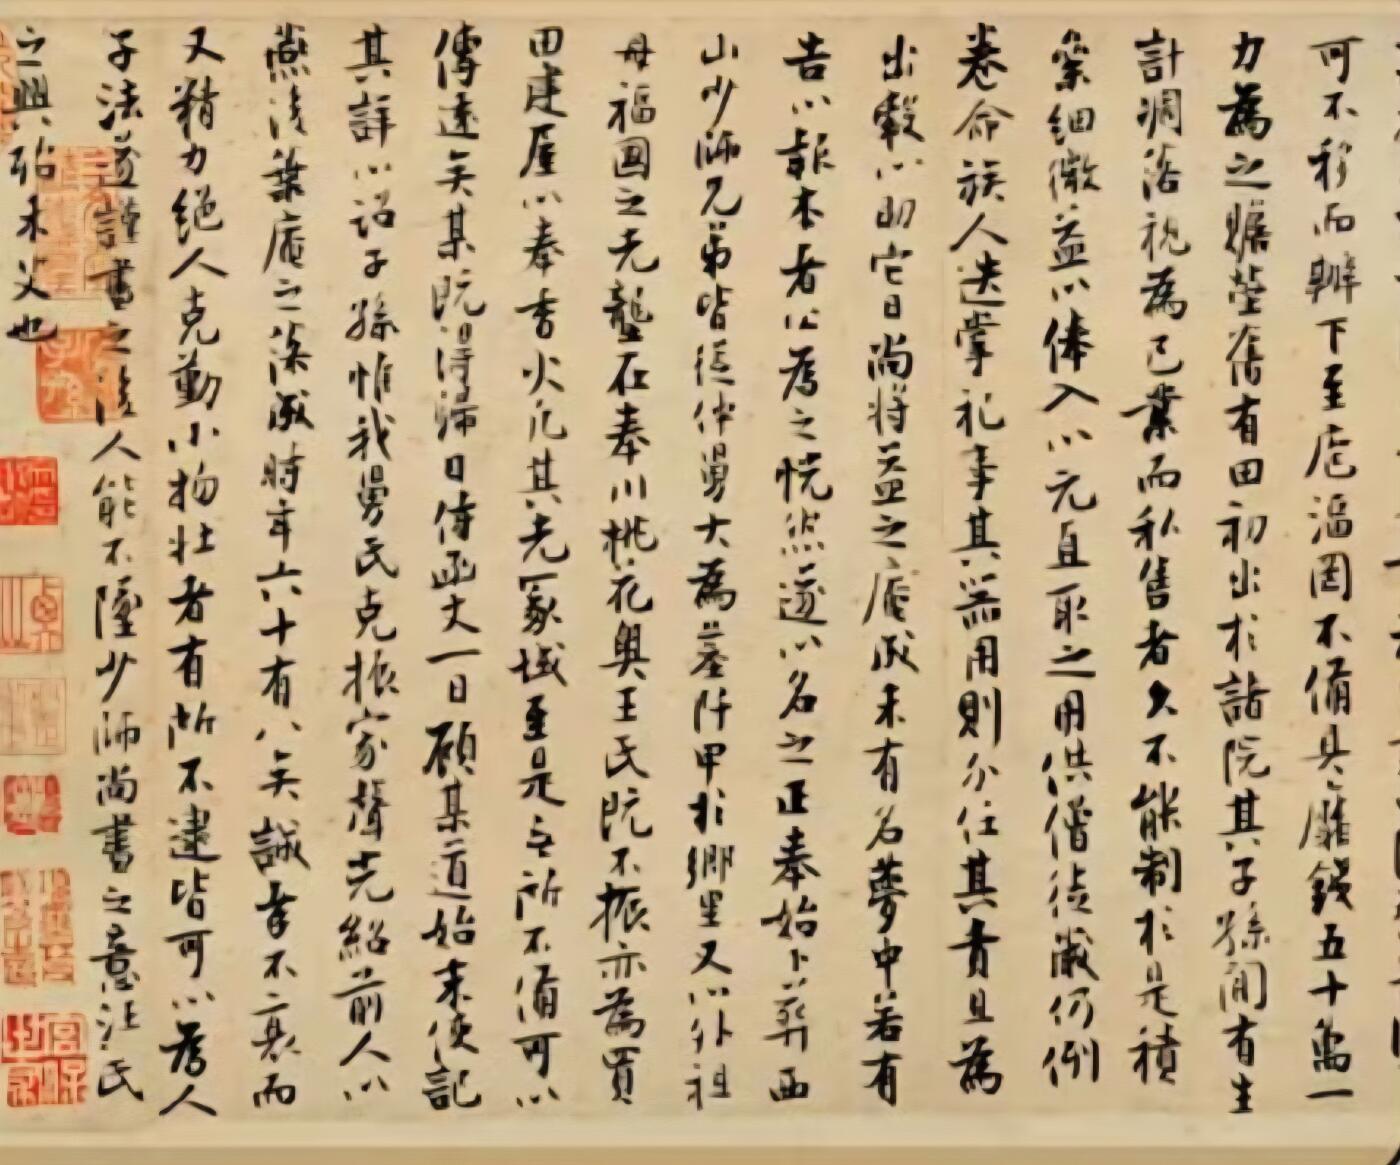 可不移而辦下至庖湢圊不備具靡錢五十萬一
力為之贍塋舊有田初出於諸院其子孫間有生
計凋落視為己業而私售者久不能制於是積
絫細微益以俸入以元直取之用供僧徒歲仍例
卷命族人迭掌祀事其器用則分任其責且為
出穀以助它日尚將益之庵成未有名夢中若有
告以報本者公為之恍然遂以名之正奉始卜葬西
山少師兄弟皆從仲舅大為墓阡甲於鄉里又以外祖
母福國之先壟在奉川桃花奧王氏既不振亦為買
田建屋以奉香火凡其先冢域至是無所不備可以
傳遠矣某既得歸日侍函丈一日顧某道始末使記
其詳以詔子孫惟我舅氏克振家聲光紹前人以
燕後葉庵之落成時年六十有八矣誠孝不衰而
又精力絕人克勤小物壯者有所不逮皆可以為人
子法遂謹書之後人能不墜少師尚書之意汪氏
之興殆未艾也